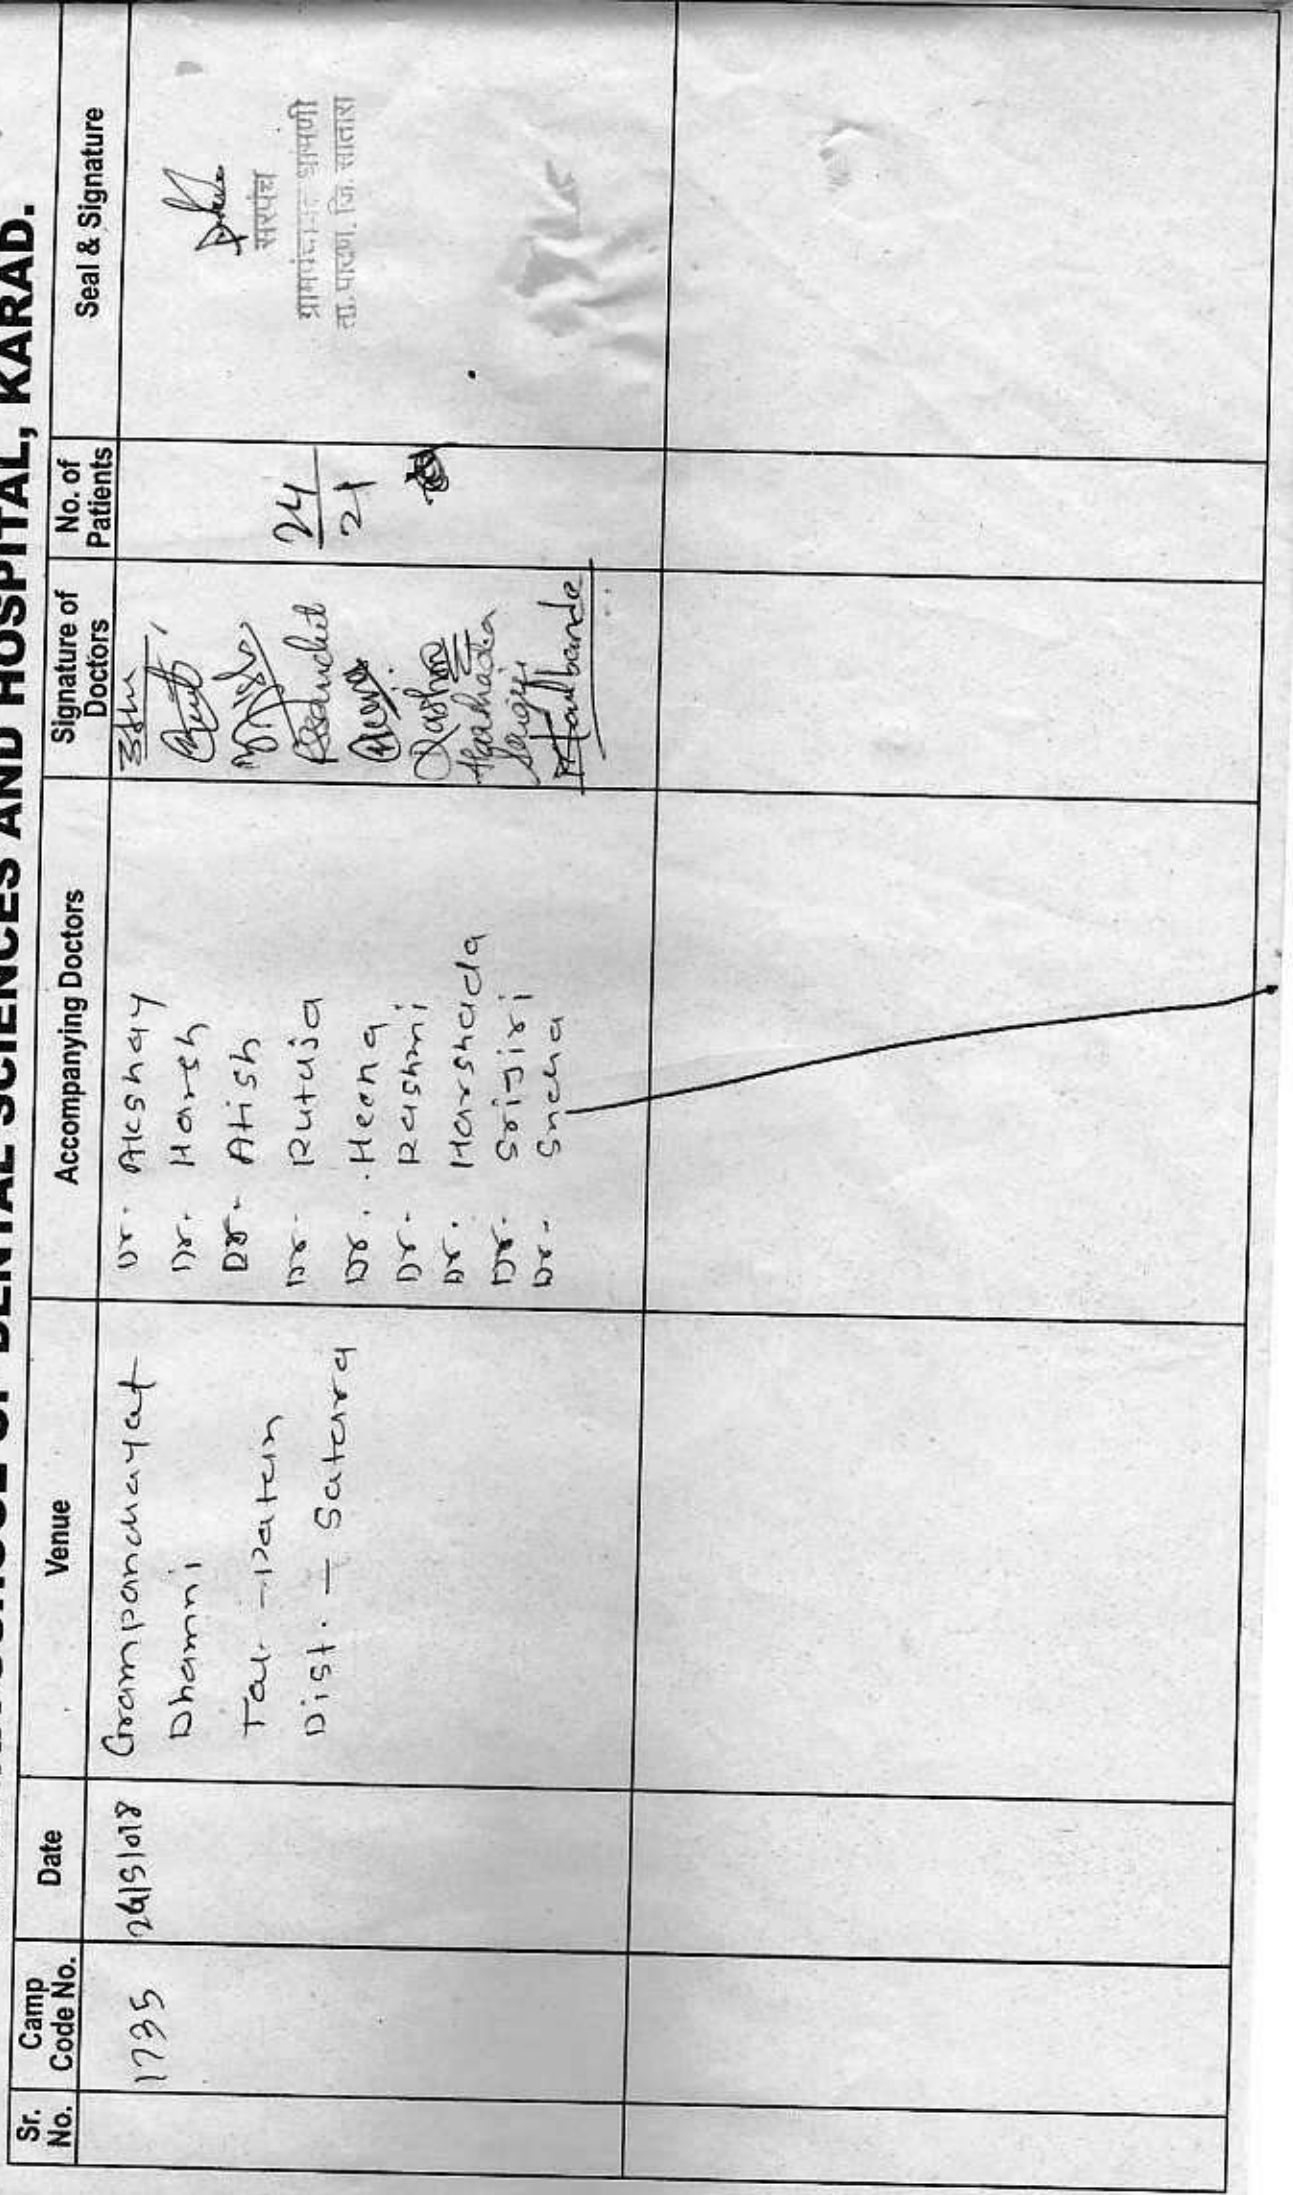 OF DENTAL SCIENCES AND HOSPITAL, KARAD.
Sr. No.
Camp Code No.
Date
Venue
Accompanying Doctors
Signature of Doctors
No. of Patients
Seal & Signature
1735
Grampanchayat
Dhamni
Tal. - Patan
Dist. - Satara
Dr. Akshay
Dr. Harsh
Dr. Atish
Dr. Rutuja
Dr. Heena
Dr. Rashmi
Dr. Harshada
Dr. Srijiri
Dr. Sneha
Rashmi
Harshada
24
21
सरपंच
ग्रामपंचायत धामणी
ता. पाटण, जि. सातारा